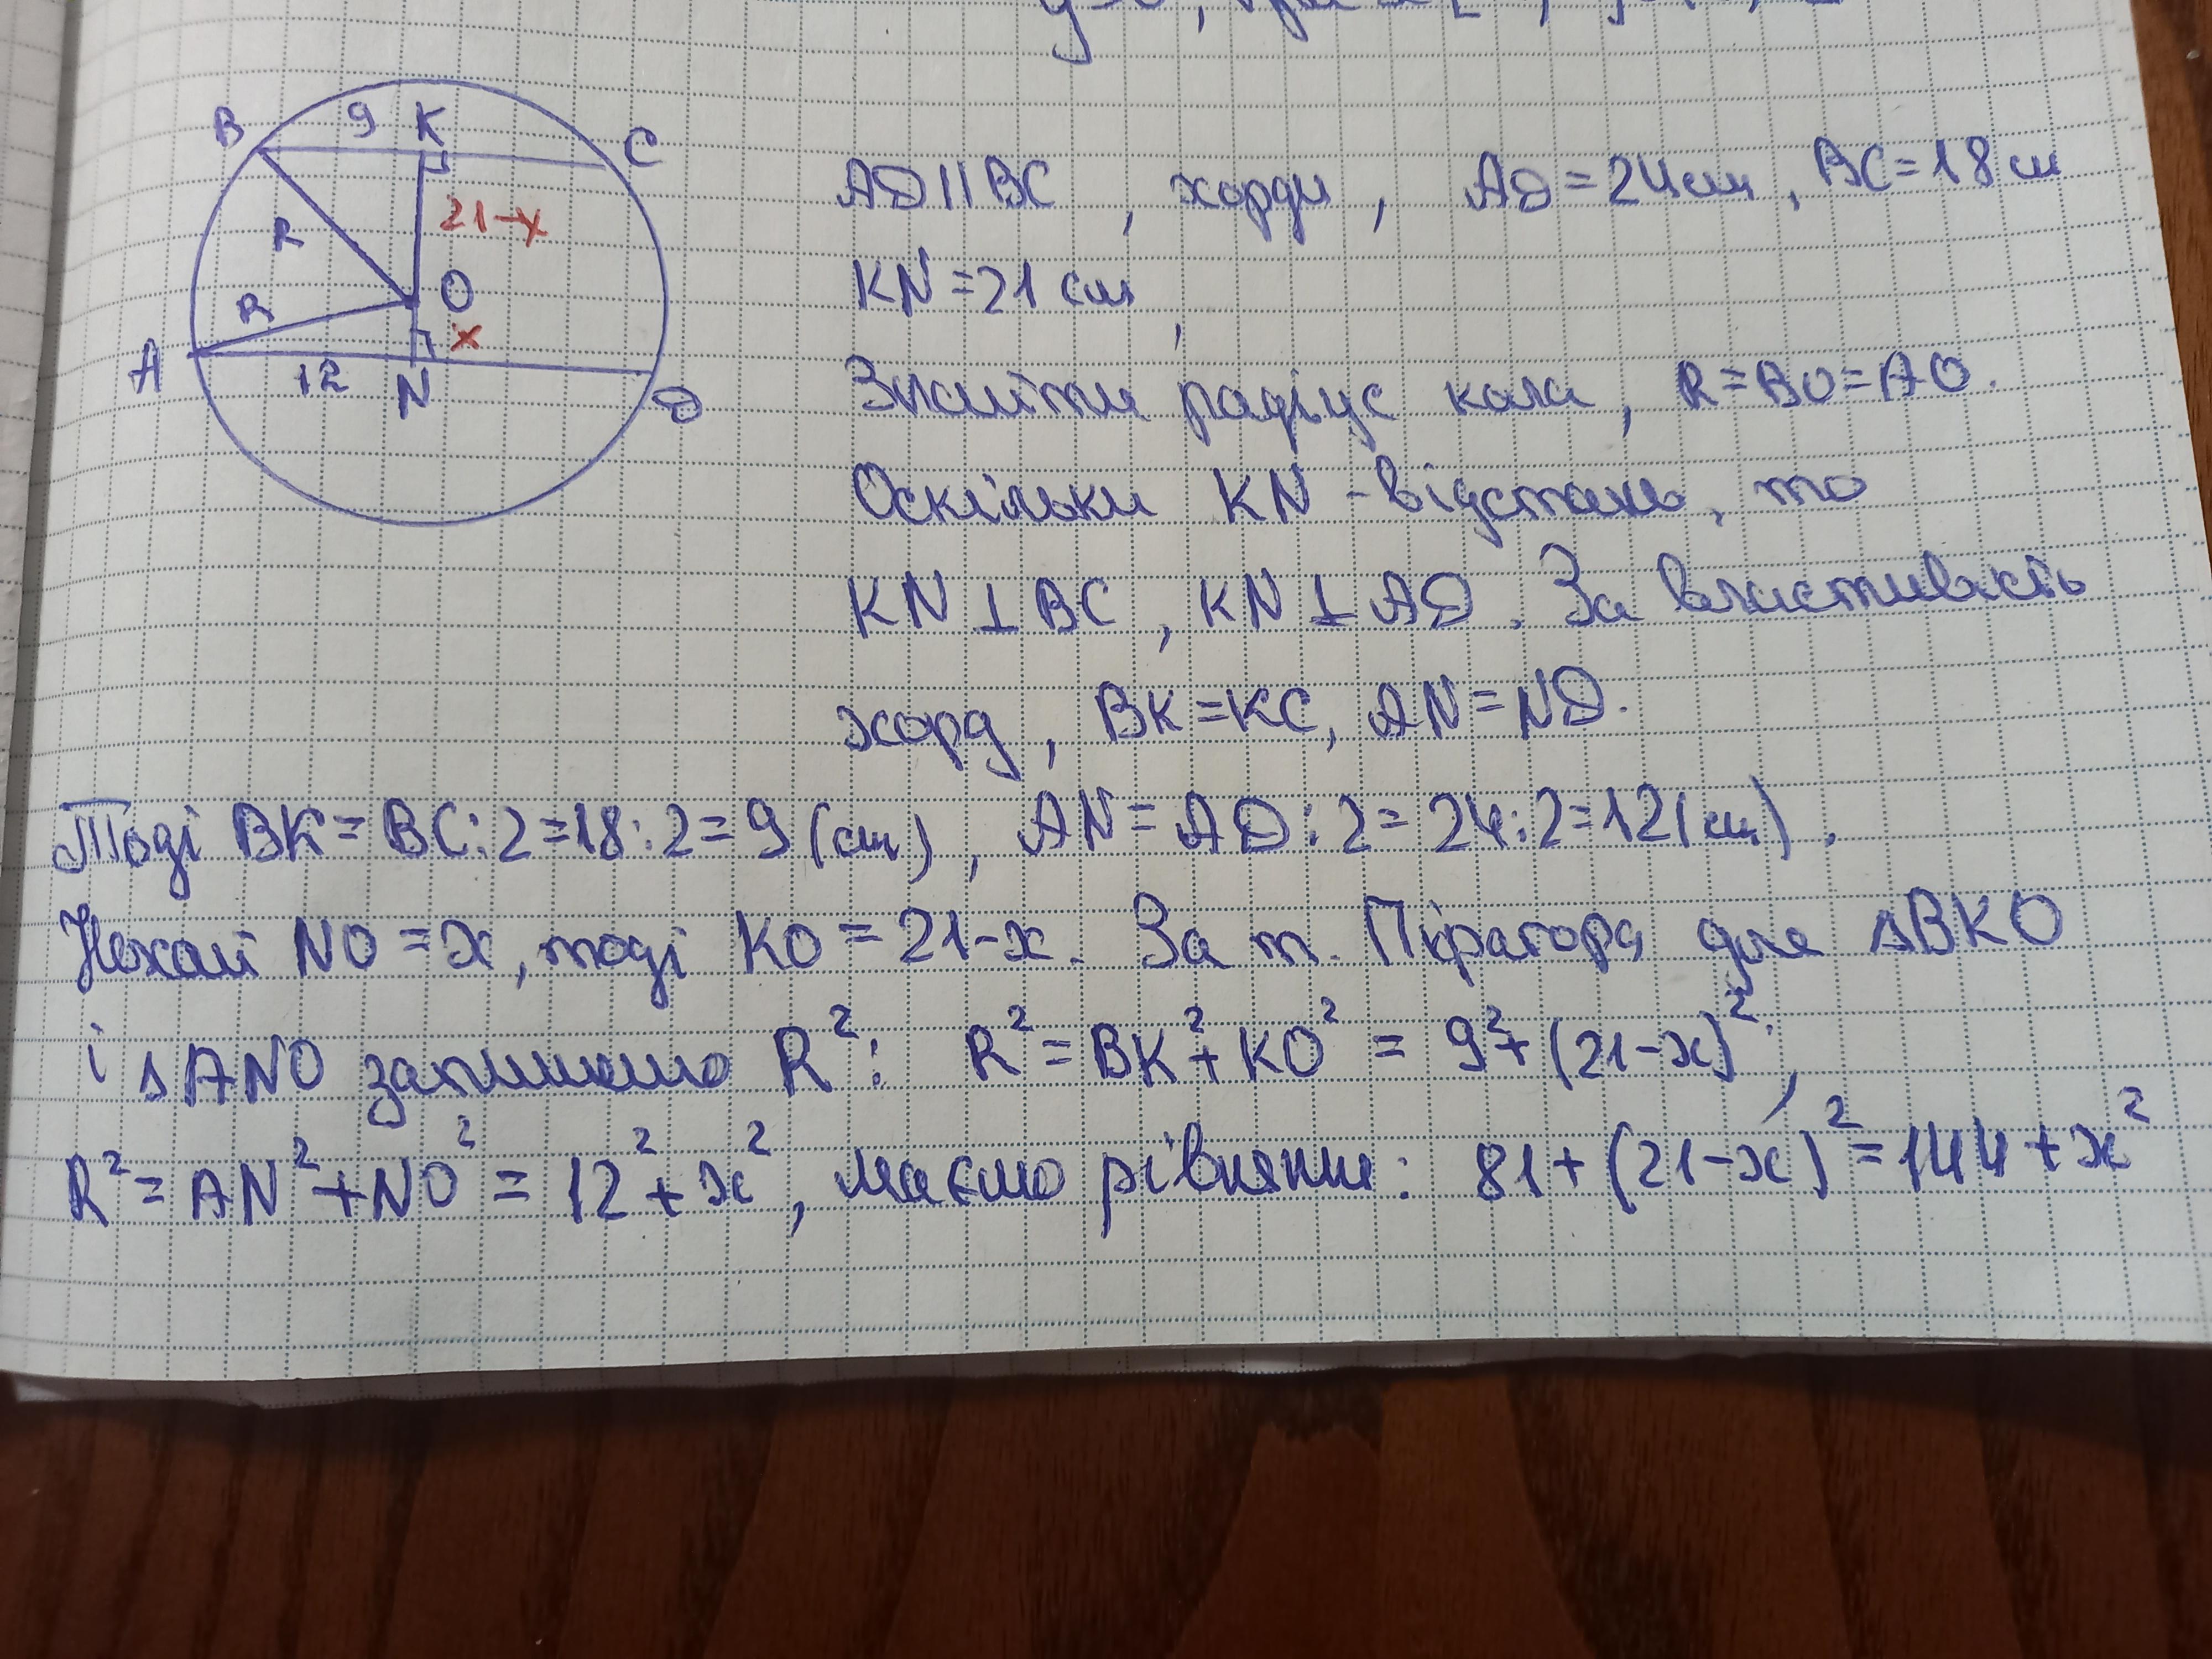 B 9 K C
21-x
R
R O
x
A 12 N D
AD||BC, хорди, AD=24см, BC=18см
KN=21см,
Знайти радіус кола, R=BO=AO.
Оскільки KN - відстань, то
KN⊥BC, KN⊥AD. За властивість
хорд, BK=KC, AN=ND.
Тоді BK=BC:2=18:2=9(см), AN=AD:2=24:2=12(см).
Нехай NO=x, тоді KO=21-x. За т. Піфагора для ΔBKO
і ΔANO запишемо R²: R²=BK²+KO²=9²+(21-x)²,
R²=AN²+NO²=12²+x², маємо рівняння: 81+(21-x)²=144+x²